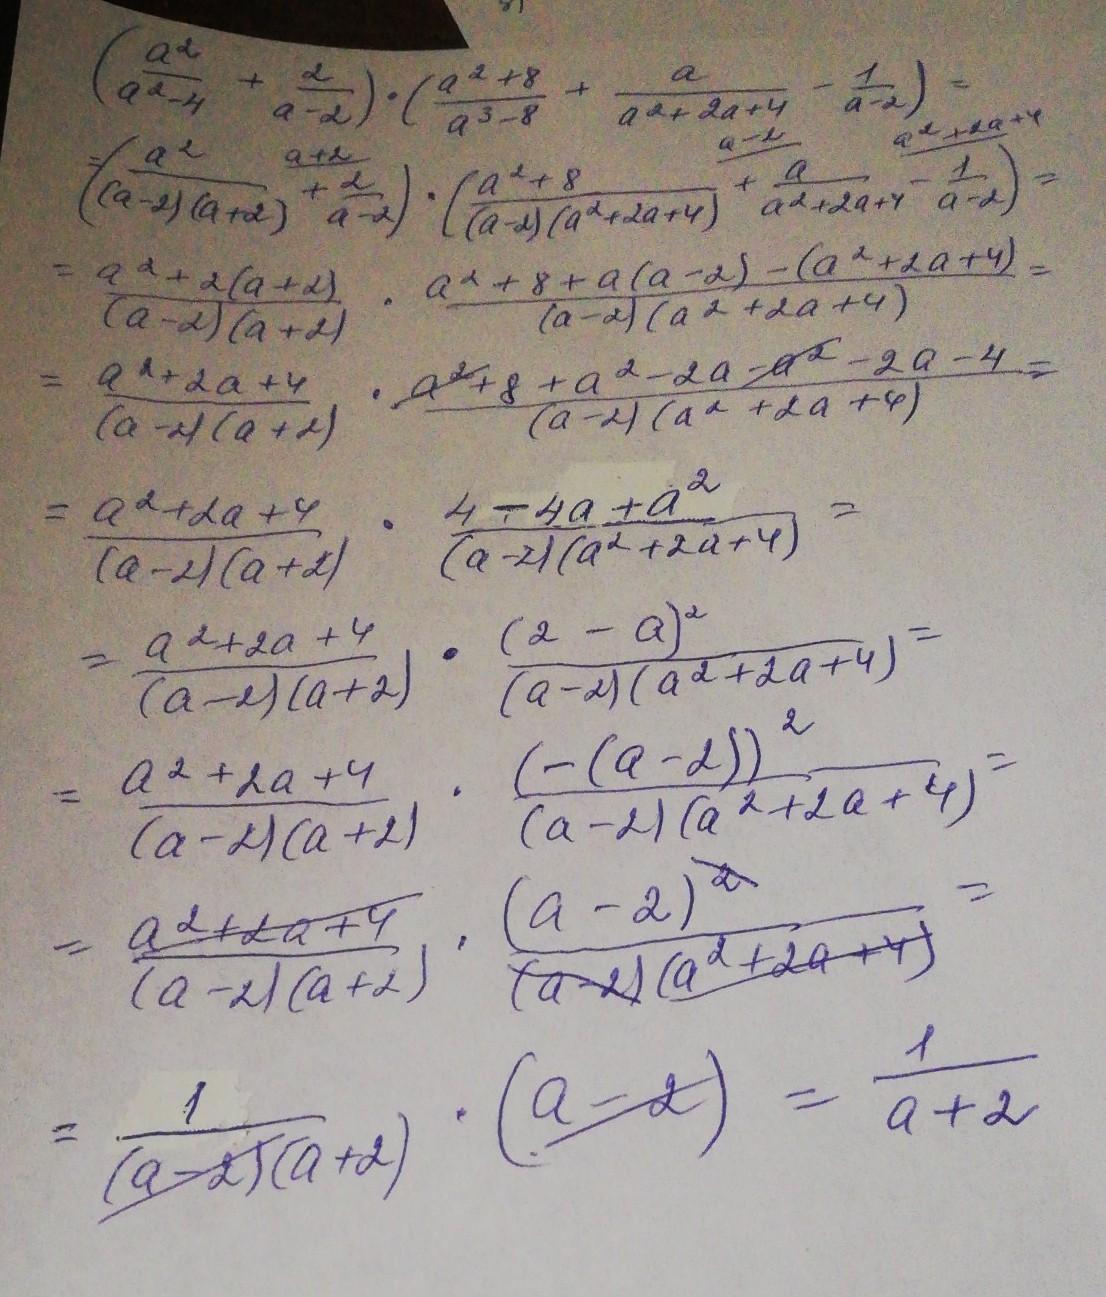 (a²/(a²-4) + 2/(a-2)) · ((a²+8)/(a³-8) + a/(a²+2a+4) - 1/(a-2)) =
= (a²/((a-2)(a+2)) + 2/(a-2) ^(a+2)) · ((a²+8)/((a-2)(a²+2a+4)) + a/(a²+2a+4) ^(a-2) - 1/(a-2) ^(a²+2a+4)) =
= (a²+2(a+2))/((a-2)(a+2)) · (a²+8+a(a-2)-(a²+2a+4))/((a-2)(a²+2a+4)) =
= (a²+2a+4)/((a-2)(a+2)) · (a²+8+a²-2a-a²-2a-4)/((a-2)(a²+2a+4)) =
= (a²+2a+4)/((a-2)(a+2)) · (4-4a+a²)/((a-2)(a²+2a+4)) =
= (a²+2a+4)/((a-2)(a+2)) · (2-a)²/((a-2)(a²+2a+4)) =
= (a²+2a+4)/((a-2)(a+2)) · (-(a-2))²/((a-2)(a²+2a+4)) =
= (a²+2a+4)/((a-2)(a+2)) · (a-2)²/((a-2)(a²+2a+4)) =
= 1/((a-2)(a+2)) · (a-2) = 1/(a+2)